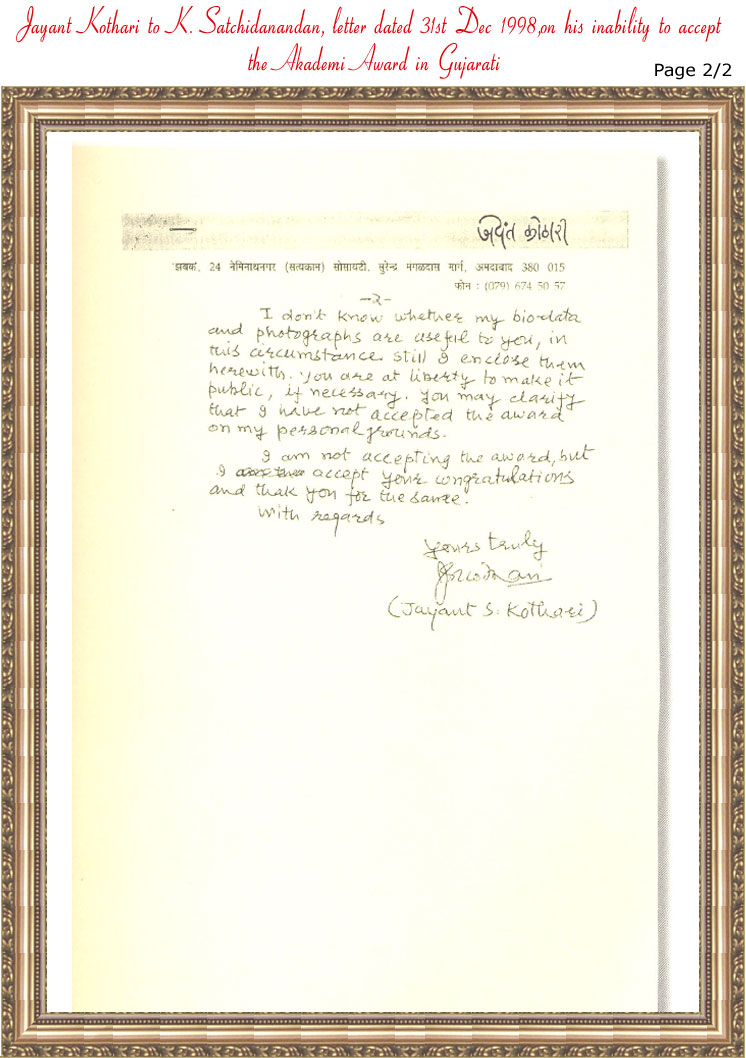 Jayant Kothari to K. Satchidanandan, letter dated 31st Dec 1998,on his inability to accept
the Akademi Award in Gujarati
Page 2/2
जयंत कोठारी
'झबक', 24 नेमिनाथनगर (सत्यकाम) सोसायटी, सुरेन्द्र मंगळदास मार्ग, अमदावाद 380 015
फोन : (079) 674 50 57
-२-
I don't know whether my bio-data
and photographs are useful to you, in
this circumstance. still I enclose them
herewith. You are at liberty to make it
public, if necessary. You may clarify
that I have not accepted the award
on my personal grounds.
I am not accepting the award, but
I accept your congratulations
and thak you for the same.
With regards
yours truly
(Jayant S. Kothari)